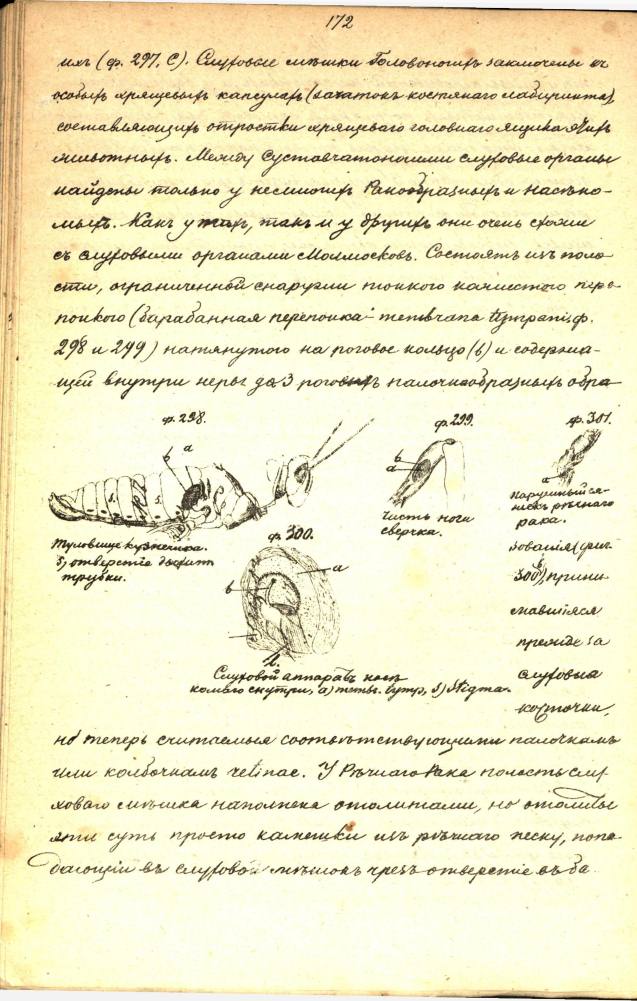 172
ихъ (ф. 297, С). Слуховые мѣшки Головоногихъ заключены въ
особыхъ хрящевыхъ капсулахъ (зачатокъ костянаго лабиринта)
составляющихъ отростки хрящеваго головнаго ящика этихъ
животныхъ. Между Суставчатоногими слуховые органы
найдены только у немногихъ Ракообразныхъ и насѣко-
мыхъ. Какъ у тѣхъ, такъ и у другихъ они очень схожи
съ слуховыми органами Моллюсковъ. Состоятъ изъ поло
сти, ограниченной снаружи тонкого
понкого (барабанная перепонка ф.
298 и 299) натянутого на роговое кольцо (b) и содержа-
щей внутри нервъ до 3 роговыхъ палочкообразныхъ обра
ф. 298.
b a
s. s.
Туловище кузнечика.
S, отверстіе дыхат
трубки.
ф. 299.
b
a
Часть ноги
сверчка.
ф. 301.
a
Наружный
рѣчнаго
рака.
ф. 300.
a
b
2.
Слуховой аппаратъ насѣ
комаго снутри, a) S) Stigma.
зованія (фиг.
300 b), прини
мавшіяся
прежде за
слуховыя
косточки,
но теперь считаемыя соотвѣтствующими палочкамъ
или колбочкамъ retinae. У Рѣчнаго Рака полость слу
ховаго мѣшка наполнена отолитами, но отолиты
эти суть просто камешки изъ рѣчнаго песку, попа
дающіи въ слуховой мѣшокъ чрезъ отверстіе въ ба